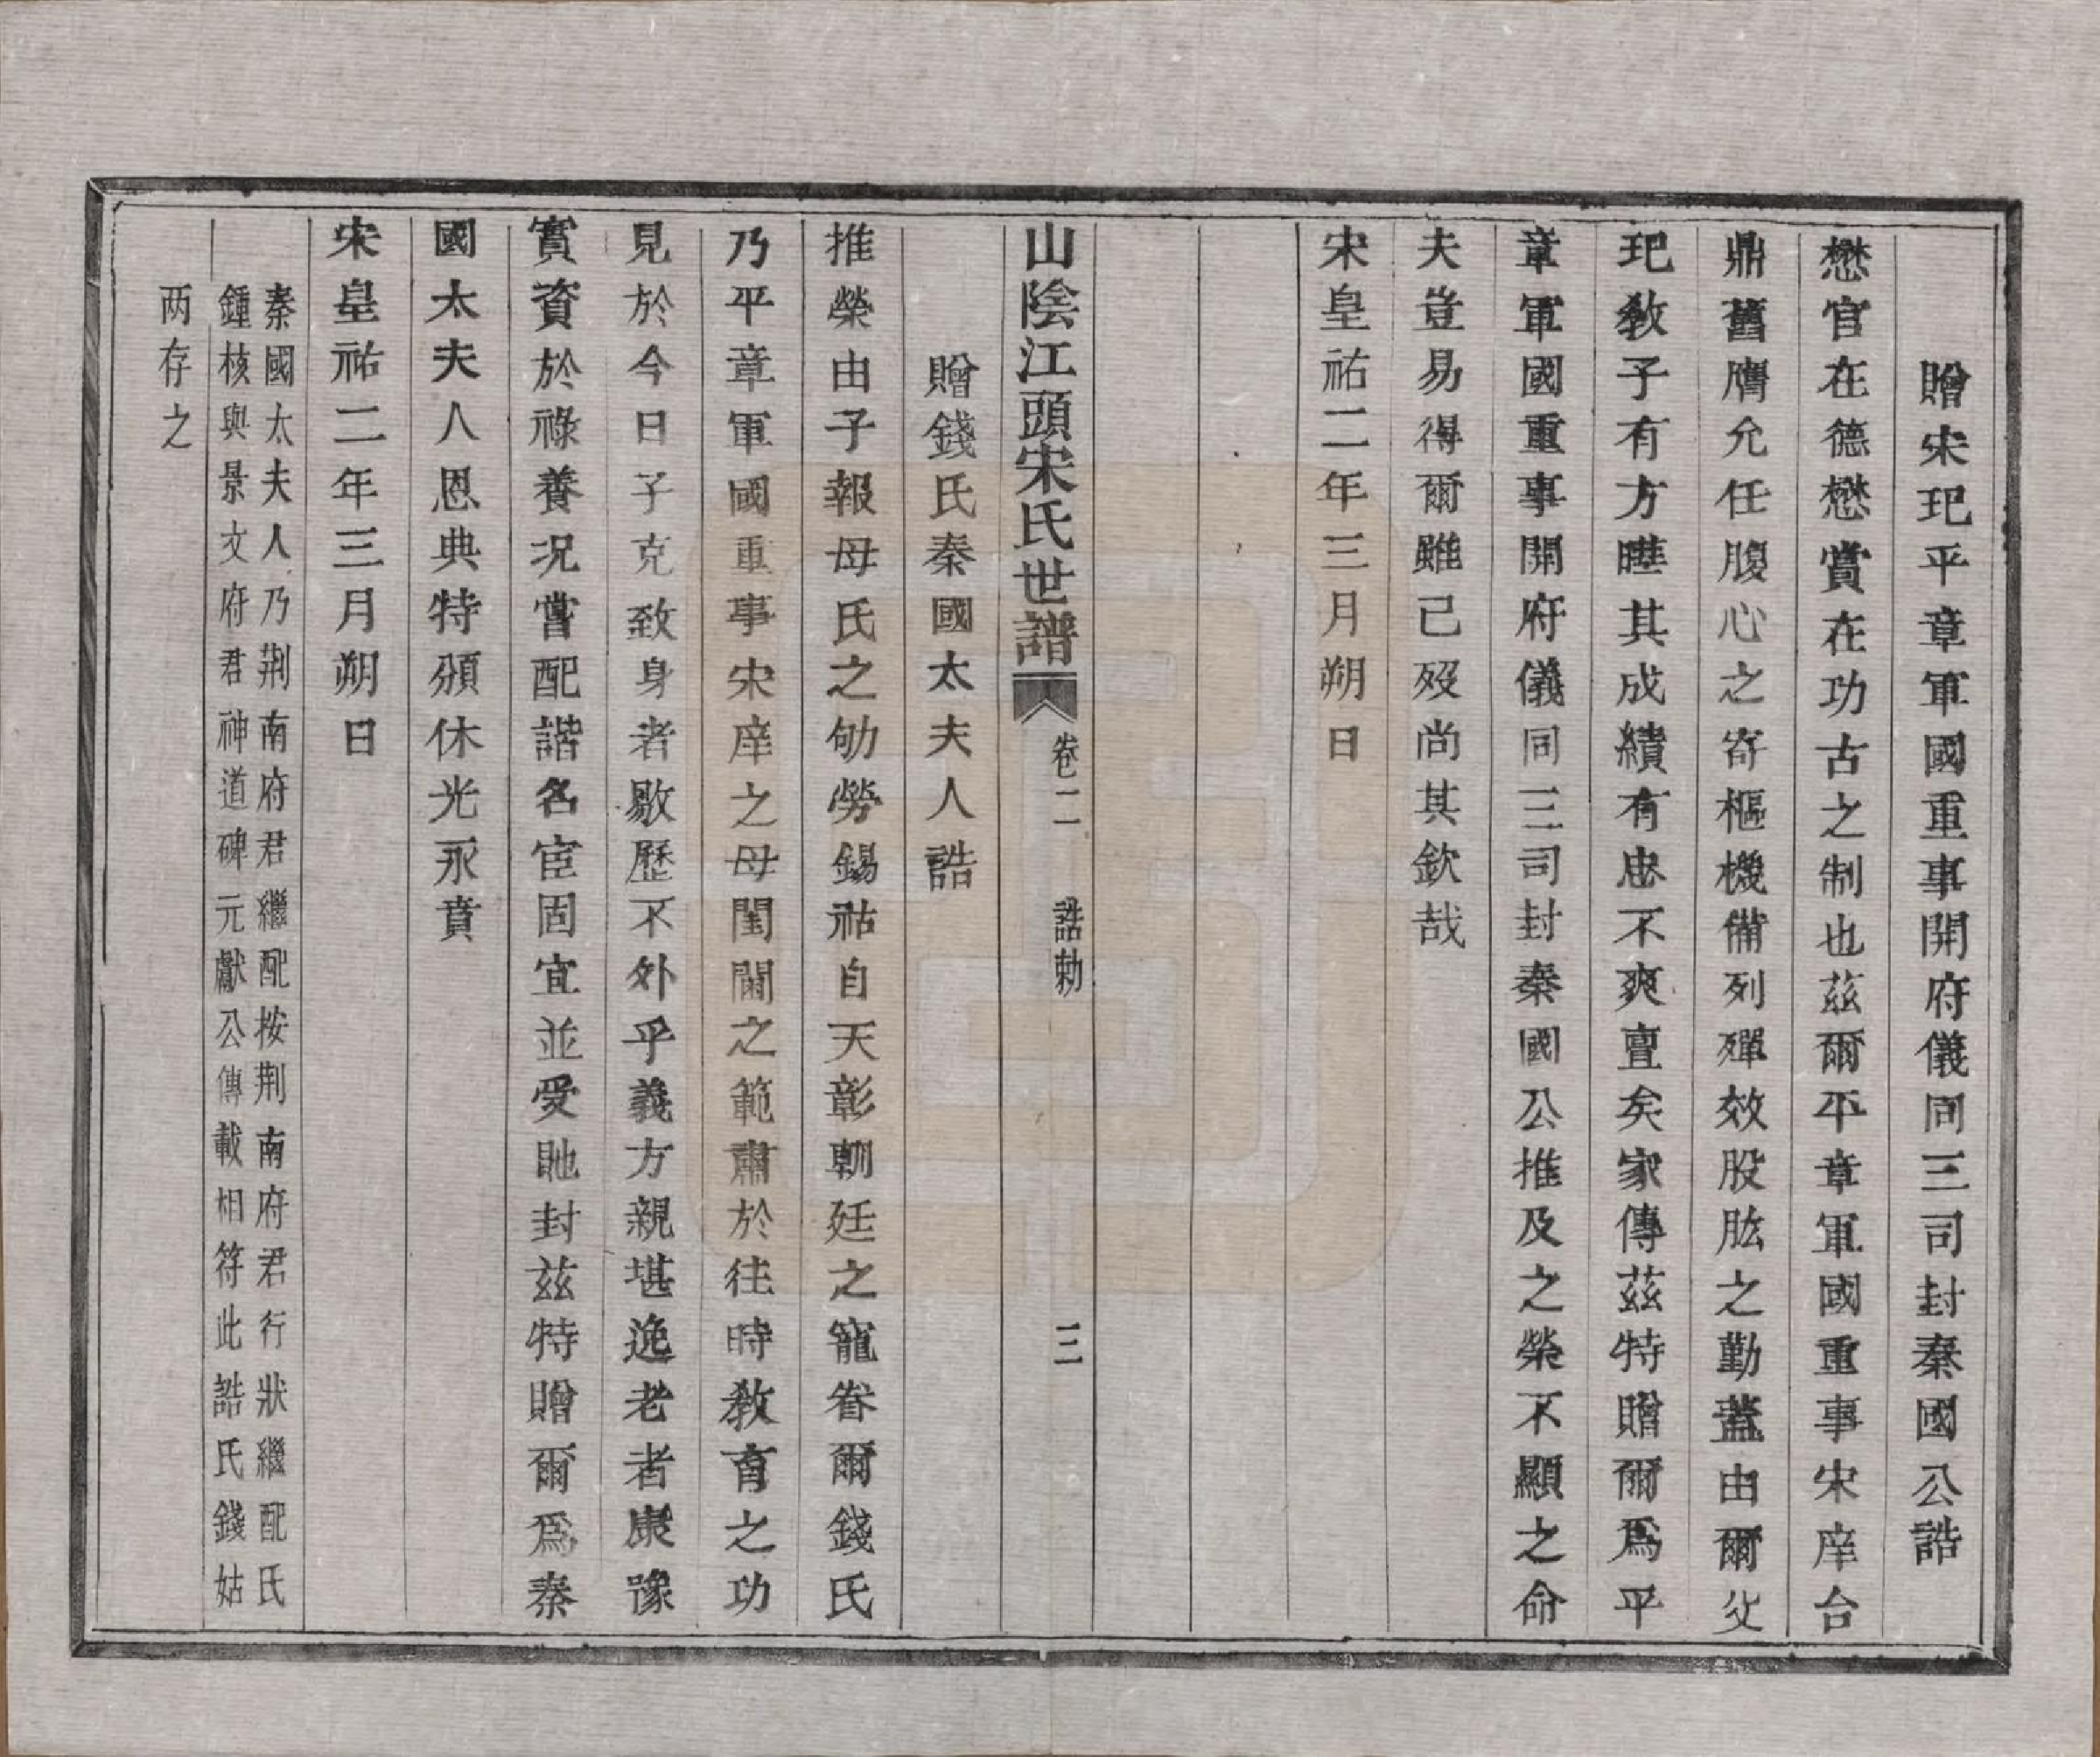 贈宋玘平章軍國重事開府儀同三司封秦國公誥
懋官在德懋賞在功古之制也茲爾平章軍國重事宋庠台
鼎舊膺允任腹心之寄樞機備列殫效股肱之勤蓋由爾父
玘敎子有方曄其成績有忠不爽亶矣家傳茲特贈爾爲平
章軍國重事開府儀同三司封秦國公推及之榮不顯之命
夫豈易得爾雖已歿尚其欽哉
宋皇祐二年三月朔日
山陰江頭宋氏世譜 卷二 誥勅 三
贈錢氏秦國太夫人誥
推榮由子報母氏之劬勞錫祜自天彰朝廷之寵眷爾錢氏
乃平章軍國重事宋庠之母閨閫之範肅於往時敎育之功
見於今日子克致身者敭歷不外乎義方親堪逸老者康豫
實資於祿養況嘗配諧名宦固宜並受貤封兹特贈爾爲秦
國太夫人恩典特頒休光永賁
宋皇祐二年三月朔日
秦國太夫人乃荆南府君繼配按荆南府君行狀繼配氏
鍾核與景文府君神道碑元獻公傳載相符此誥氏錢姑
两存之